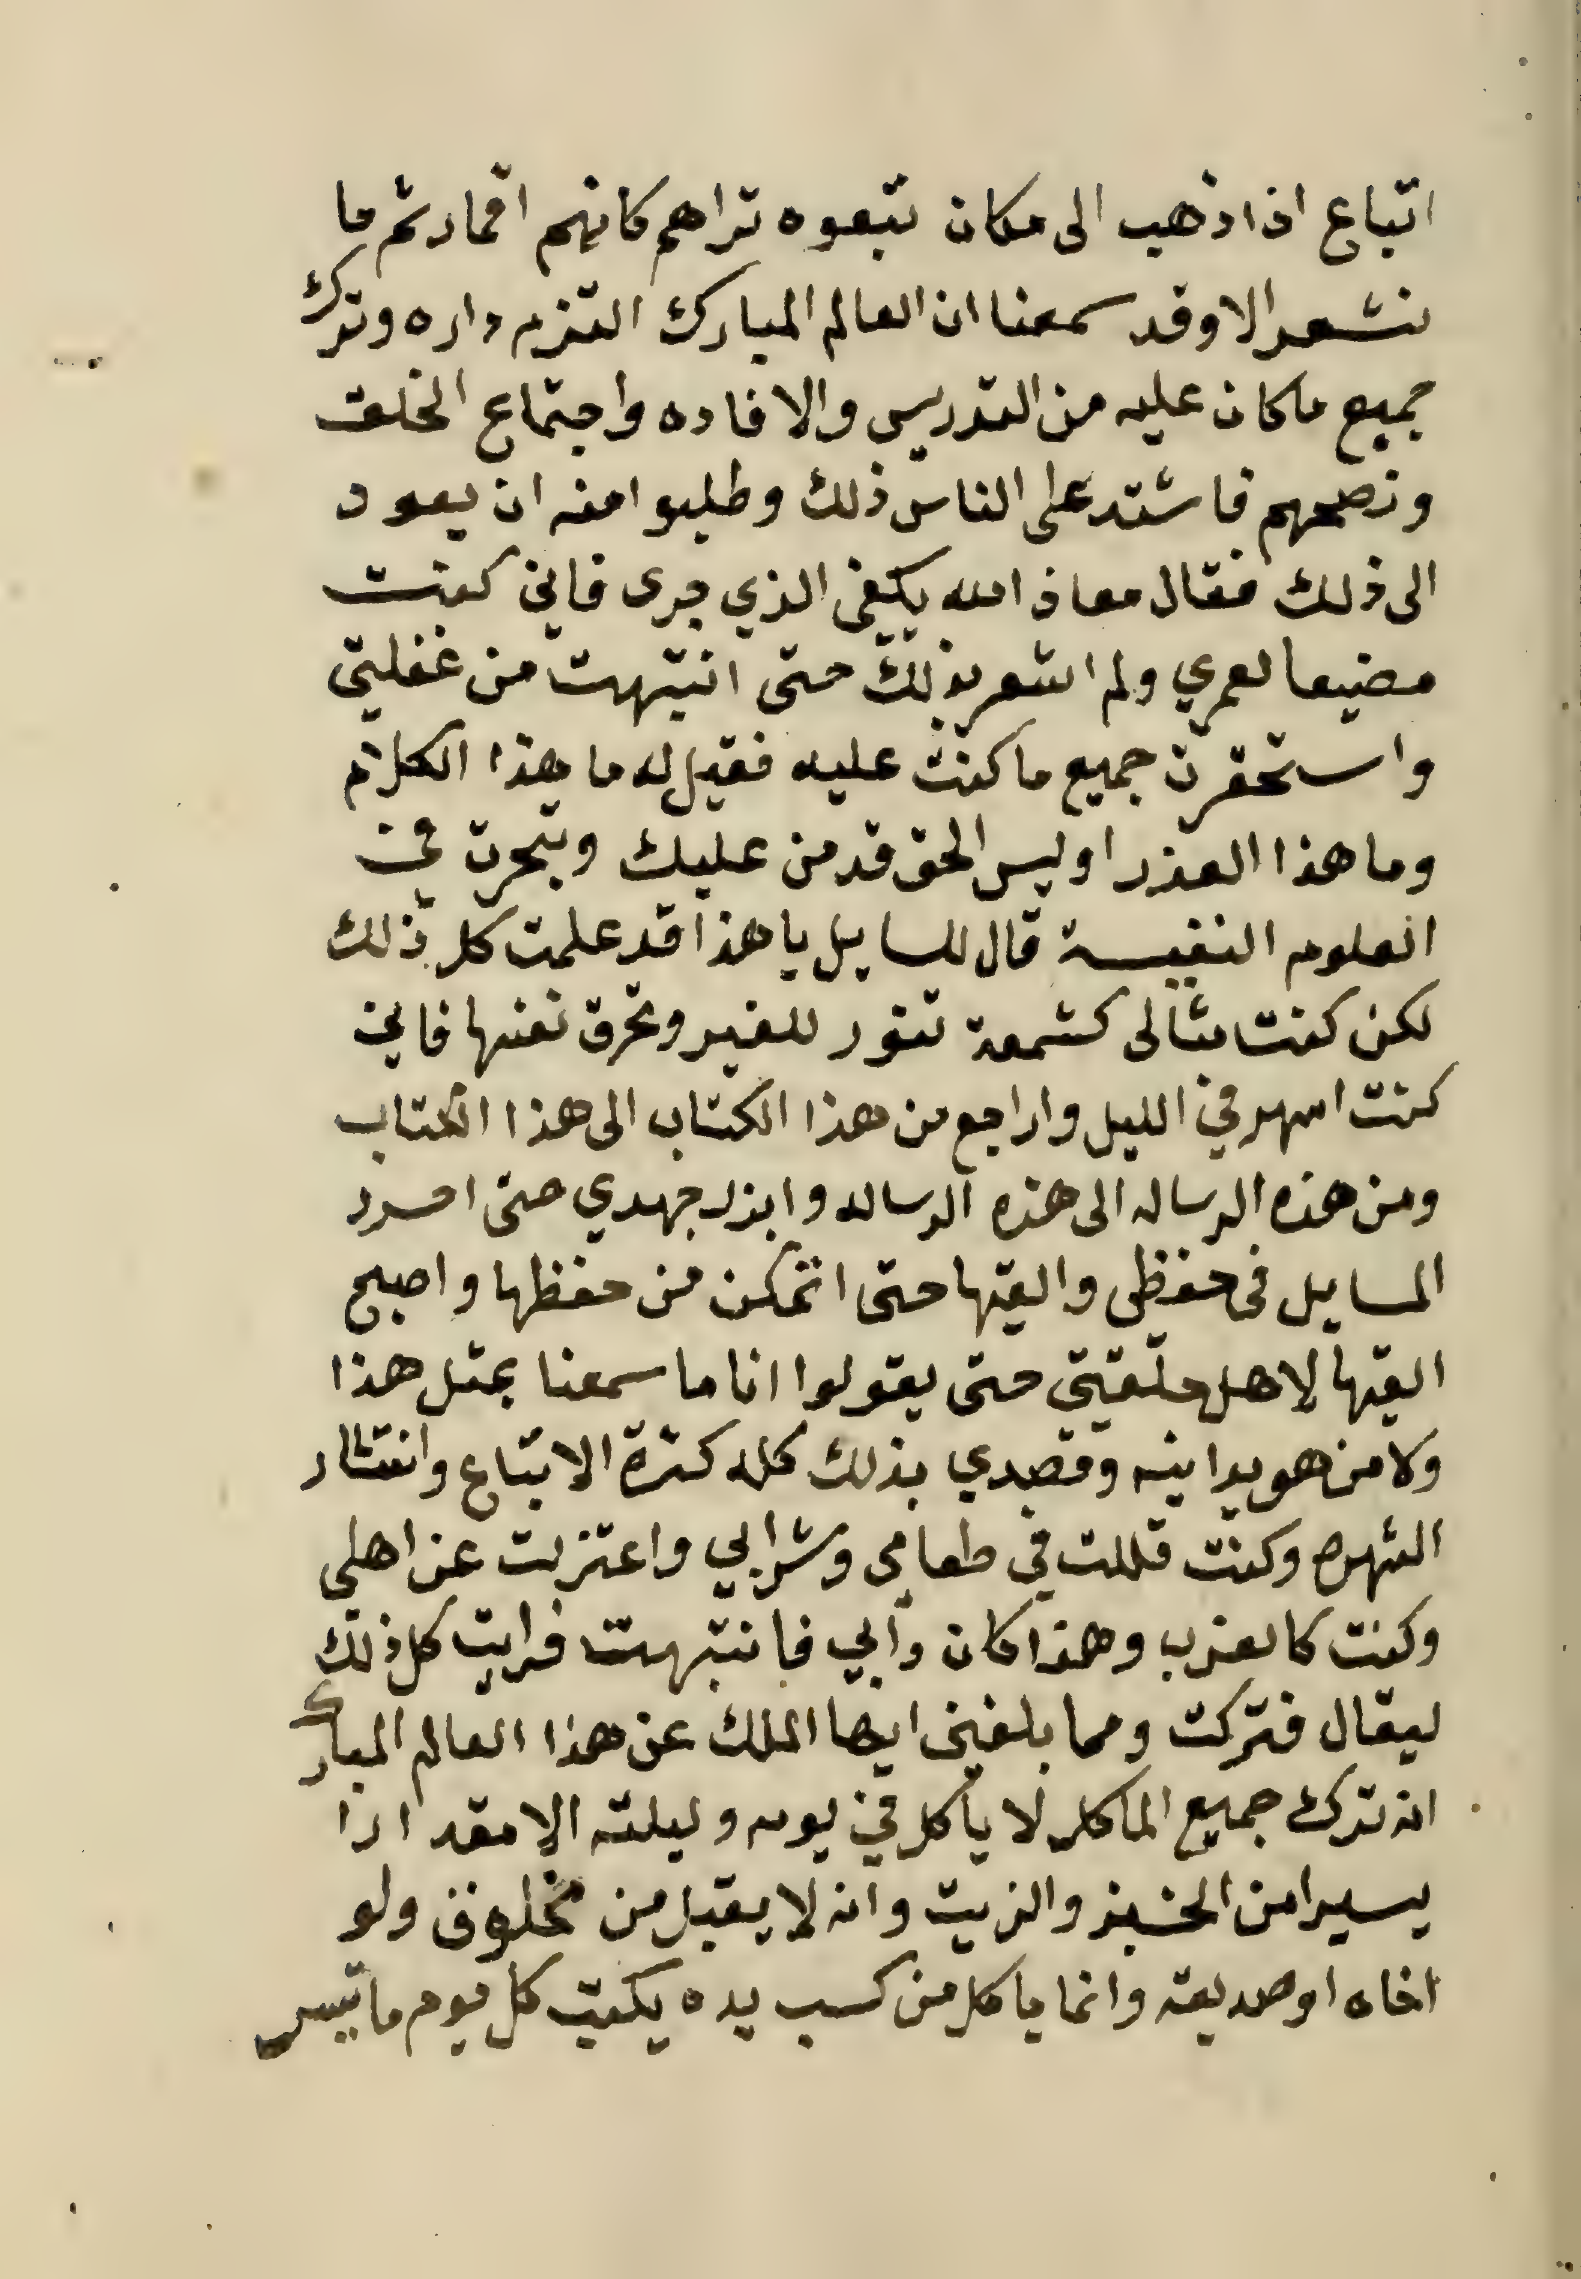 اتباع اذا ذهب الى مكان تتبعوه تراهم كانهم اقمار ثم ما
نشعر الا وقد سمعنا ان العالم المبارك التزم داره وترك
جميع ما كان عليه من التدريس والافاده واجتماع الخلق
ونصحهم فاشتد على الناس ذلك وطلبوا منه ان يعود
الى ذلك فقال معاذ الله يكفي الذي جرى فاني كنت
مضيعا لعمري ولم اشعر بذلك حتى انتبهت من غفلتي
واستحقرت جميع ما كنت عليه فقيل له ما هذا الكلام
وما هذا العذر اوليس الحق قد من عليك وتبحرت في
العلوم النفيسة قال للسايل يا هذا قد علمت كل ذلك
لكن كنت مثالى كشمعة تنور للغير وتحرق نفسها فاني
كنت اسهر في الليل واراجع من هذا الكتاب الى هذا الكتاب
ومن هذه الرساله الى هذه الرساله وابذل جهدي حتى اسرد
المسايل في حفظي والقيها حتى اتمكن من حفظها واصبح
القيها لاهل حلقتي حتى يقولوا انا ما سمعنا بمثل هذا
ولا من هو يدانيه وقصدي بذلك كله كثرة الاتباع وانتشار
الشهره وكنت قللت في طعامي وشرابي واعتزلت عن اهلي
وكنت كالعزب وهذا كان دابي فانتبهت فرايت كل ذلك
ليقال فتركت ومما بلغني ايها الملك عن هذا العالم المبارك
انه ترك جميع الماكل لا ياكل في يومه وليلته الا مقدارا
يسيرا من الخبز والزيت وانه لا يقبل من مخلوق ولو
اخاه او صديقه وانما ياكل من كسب يده يكتب كل يوم ما تيسر